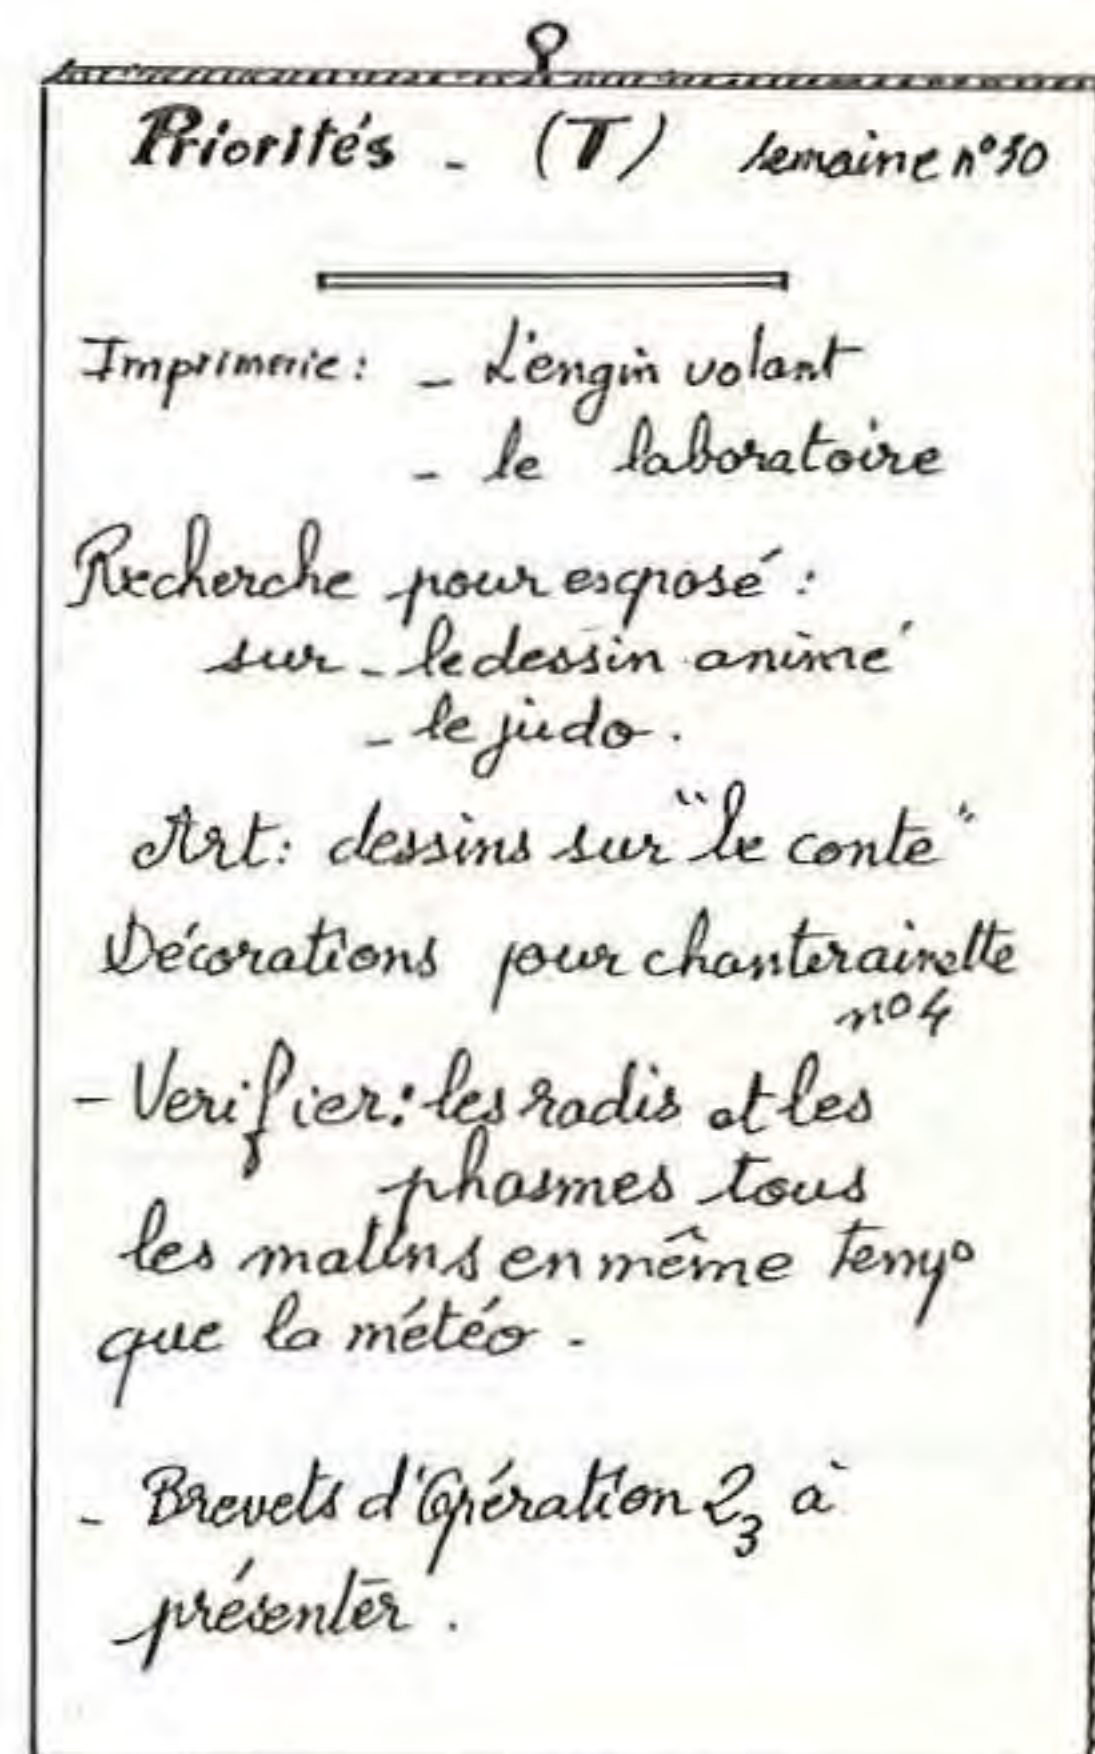 Priorités - (T) semaine n°10
Imprimerie : - L'engin volant
- le laboratoire
Recherche pour exposé :
sur - le dessin animé
- le judo.
Art : dessins sur "le conte"
Décorations pour chanterainette
n°4
- Verifier : les radis et les
phasmes tous
les matins en même temps
que la météo -
- Brevets d'Opération 2₃ à
présenter.